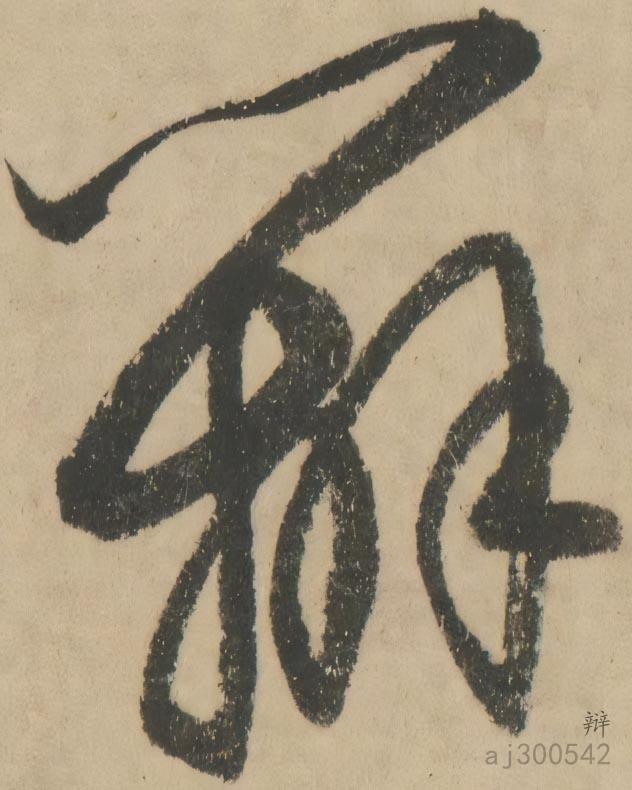 辩
辩
aj300542